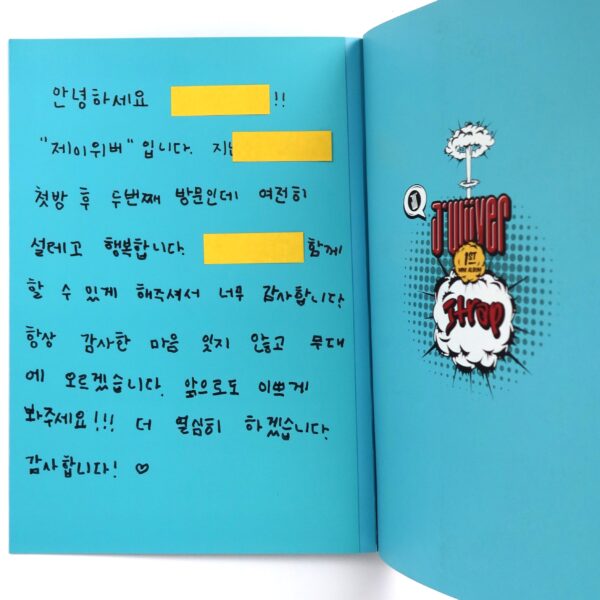 안녕하세요 !!
"제이위버"입니다. 지난
첫방 후 두번째 방문인데 여전히
설레고 행복합니다. 함께
할 수 있게 해주셔서 너무 감사합니다.
항상 감사한 마음 잊지 않고 무대
에 오르겠습니다. 앞으로도 이쁘게
봐주세요!!! 더 열심히 하겠습니다.
감사합니다! ♡
J'wüver
1ST
MINI ALBUM
J:trap